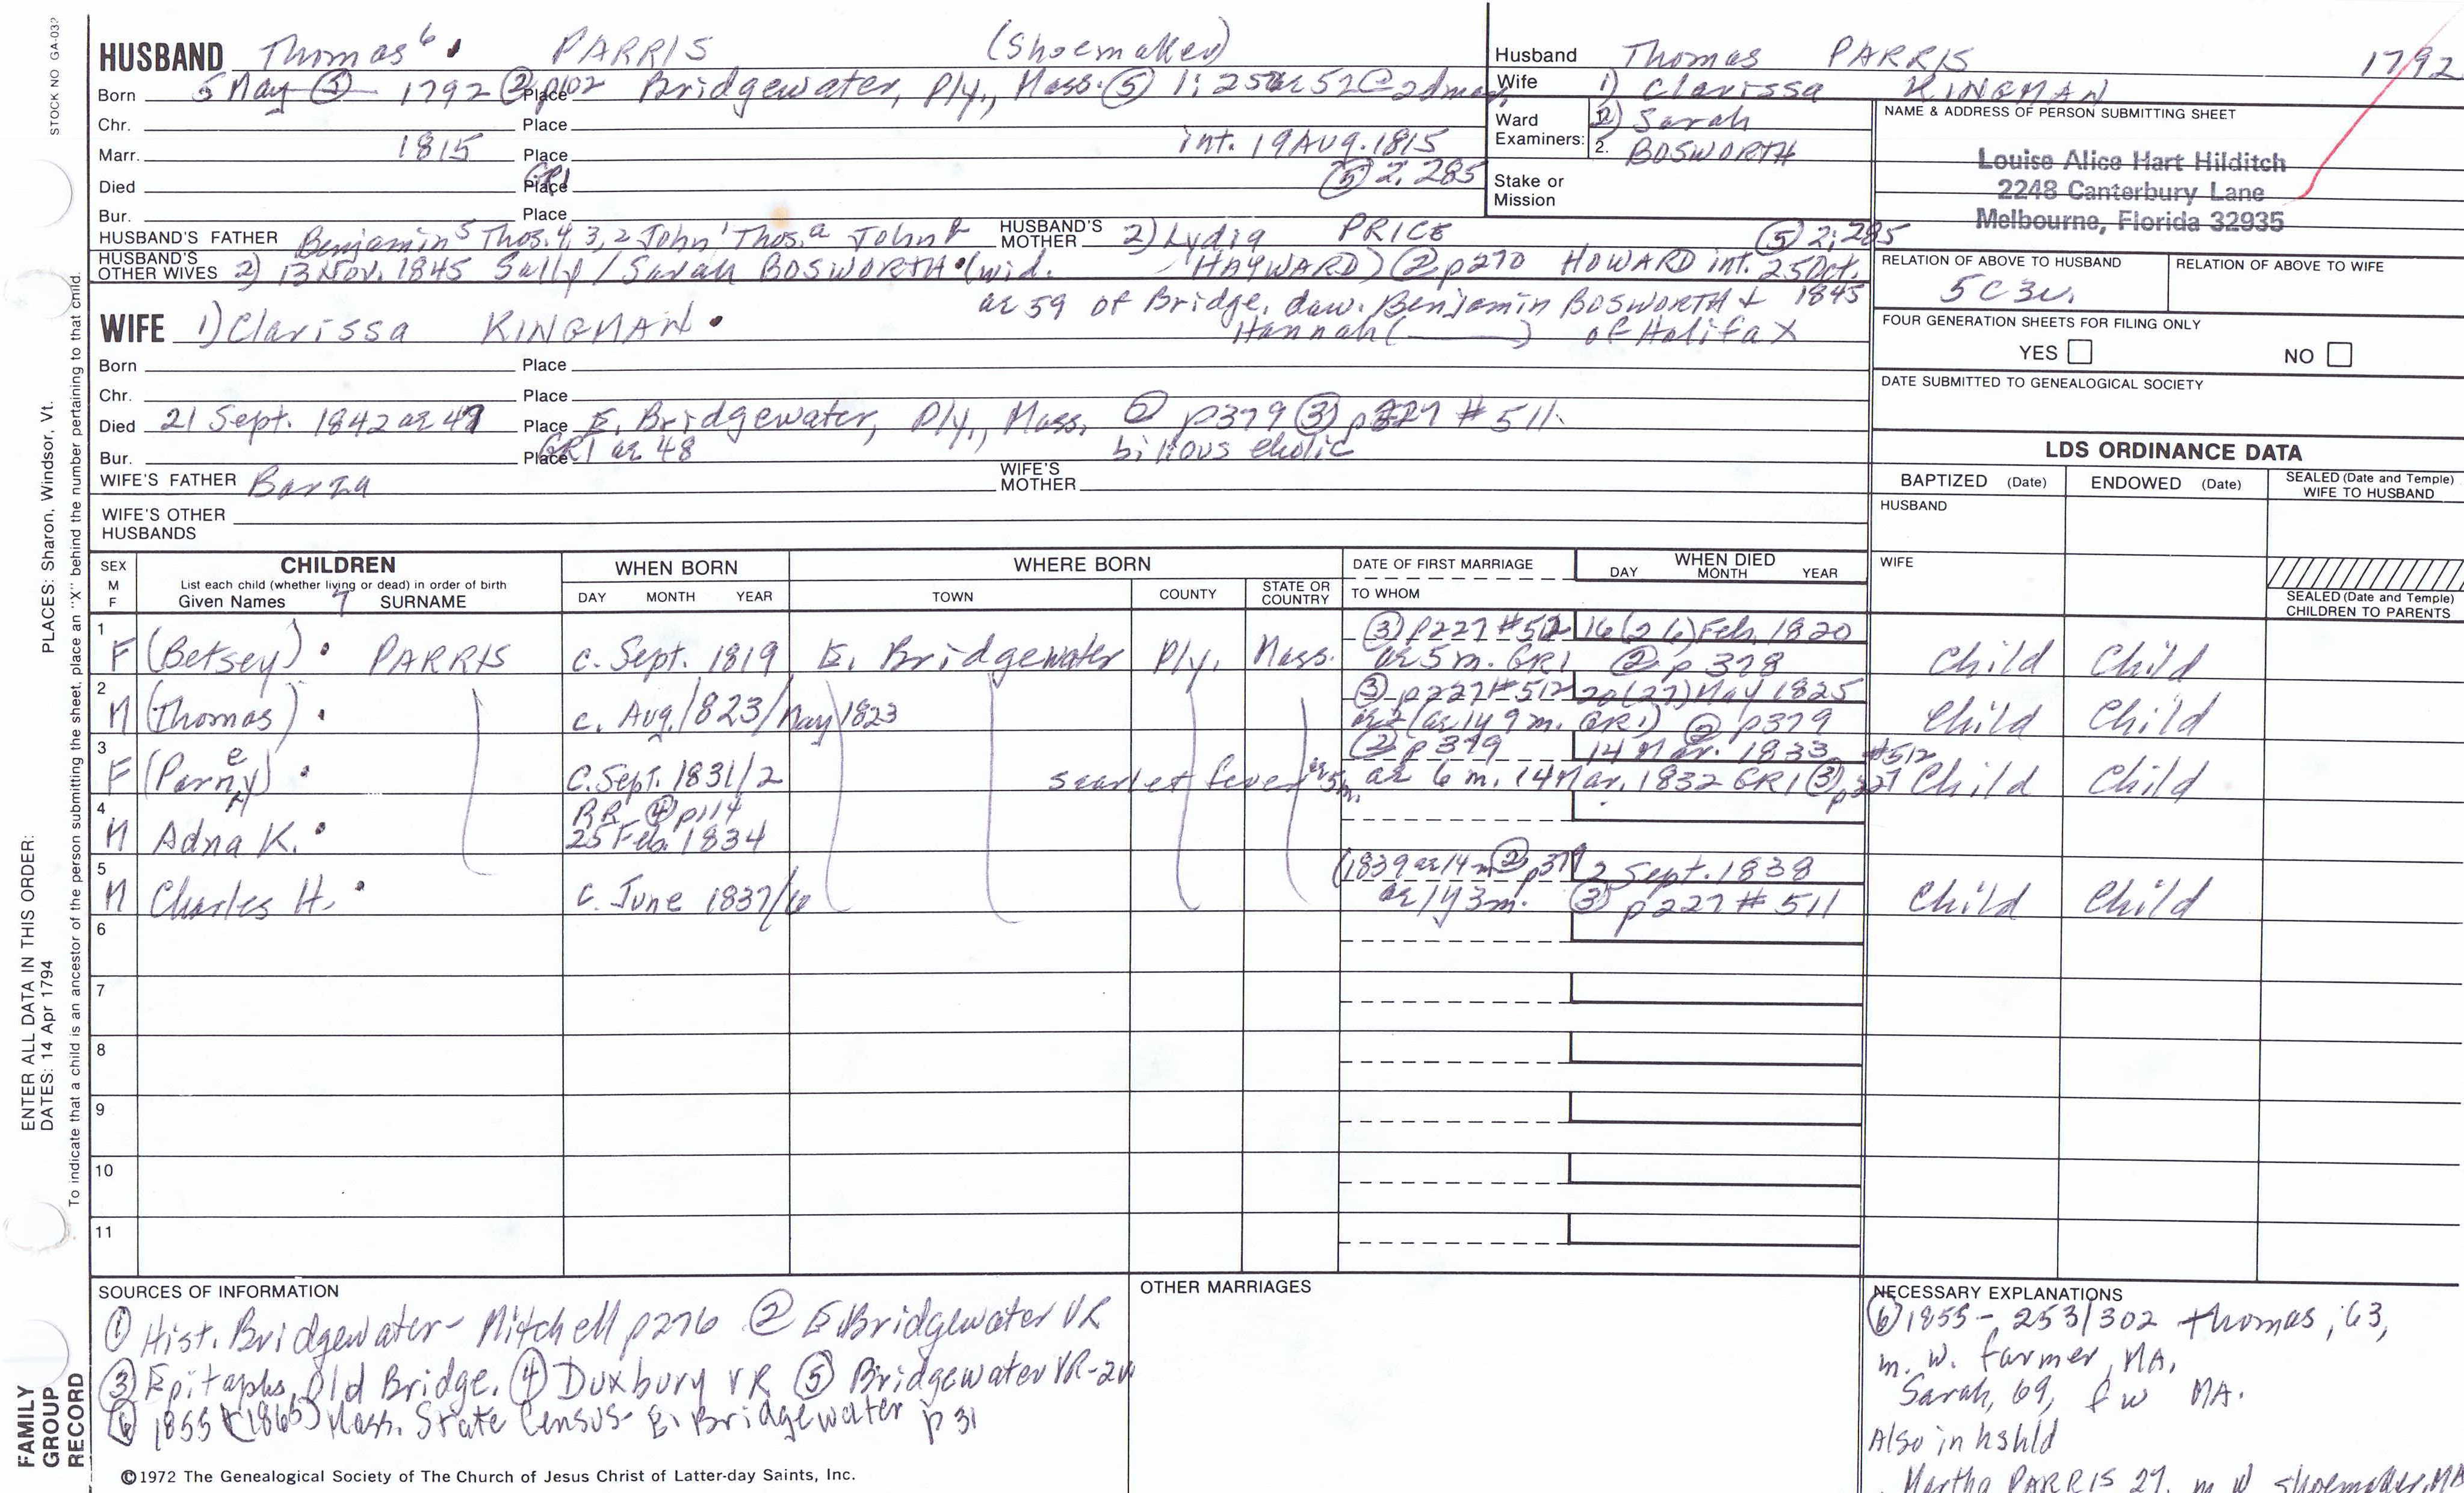 STOCK NO GA-032
HUSBAND Thomas⁶ PARRIS (Shoemaker)
Born 5 May ⑤ 1792 ② p102 Place Bridgewater, Ply., Mass. ⑤ 1; 252 ae 52 @ 2d mar.
Chr. Place
Marr. 1815 Place int. 19 AUG. 1815
Died Place GR1 ⑤ 2; 285
Bur. Place
HUSBAND'S FATHER Benjamin⁵ Thos. 4, 3, 2 John¹ Thos.ᵃ John HUSBAND'S MOTHER 2) Lydia PRICE ⑤ 2; 285
HUSBAND'S OTHER WIVES 2) 13 Nov. 1845 Sally/Sarah BOSWORTH (wid. HAYWARD) ② p270 HOWARD int. 25 Oct. 1845
ae 59 of Bridge. daw. Benjamin BOSWORTH +
Hannah ( ) of Halifax
WIFE 1) Clarissa KINGMAN
Born Place
Chr. Place
Died 21 Sept. 1842 ae 47 Place E. Bridgewater, Ply., Mass. ② p379 ③ p227 #511
Bur. Place GR1 ae 48 bilious cholic
WIFE'S FATHER Barza WIFE'S MOTHER
WIFE'S OTHER HUSBANDS
Husband Thomas PARRIS 1792
Wife 1) Clarissa KINGMAN
Ward Examiners: 1. 2) Sarah
2. BOSWORTH
Stake or Mission
NAME & ADDRESS OF PERSON SUBMITTING SHEET
Louise Alice Hart Hilditch
2248 Canterbury Lane
Melbourne, Florida 32935
RELATION OF ABOVE TO HUSBAND RELATION OF ABOVE TO WIFE
5C3u.
FOUR GENERATION SHEETS FOR FILING ONLY
YES NO
DATE SUBMITTED TO GENEALOGICAL SOCIETY
LDS ORDINANCE DATA
BAPTIZED (Date) ENDOWED (Date) SEALED (Date and Temple) WIFE TO HUSBAND
HUSBAND
WIFE
SEALED (Date and Temple) CHILDREN TO PARENTS
SEX M F CHILDREN WHEN BORN WHERE BORN DATE OF FIRST MARRIAGE WHEN DIED
List each child (whether living or dead) in order of birth
Given Names 7 SURNAME DAY MONTH YEAR TOWN COUNTY STATE OR COUNTRY TO WHOM DAY MONTH YEAR
1 ③ p227 #512 16(26) Feb. 1820
F (Betsey) PARRIS c. Sept. 1819 E. Bridgewater Ply. Mass. ae 5 m. GR1 ② p378 Child Child
2 ③ p227 #512 20(27) May 1825
M (Thomas) c. Aug. 1823/May 1823 ae 2 (ae 1 y 9 m. GR1) ② p379 Child Child
3 ② p379 14 Mar. 1833 #512
F (Parney) c. Sept. 1831/2 scarlet fever ae 5 m. ae 6 m. 14 Mar. 1832 GR1 ③ p227 Child Child
4 BR ④ p114
M Adna K. 25 Feb. 1834
5 (1839 ae 14 m ② p379 2 Sept. 1838
M Charles H. c. June 1837/6 ae 1 y 3 m. ③ p227 #511 Child Child
6
7
8
9
10
11
SOURCES OF INFORMATION
① Hist. Bridgewater - Mitchell p276 ② E. Bridgewater VR
③ Epitaphs, Old Bridge. ④ Duxbury VR ⑤ Bridgewater VR-2v
⑥ 1855 (1865) Mass. State Census - E. Bridgewater p 31
OTHER MARRIAGES
NECESSARY EXPLANATIONS
⑥ 1855 - 253/302 Thomas, 63,
m. w. farmer, MA.
Sarah, 69, f w MA.
Also in hshld
Martha PARRIS 27, m w shoemaker, MA
©1972 The Genealogical Society of The Church of Jesus Christ of Latter-day Saints, Inc.
FAMILY GROUP RECORD
ENTER ALL DATA IN THIS ORDER:
DATES: 14 Apr 1794
PLACES: Sharon, Windsor, Vt.
To indicate that a child is an ancestor of the person submitting the sheet, place an "X" behind the number pertaining to that child.